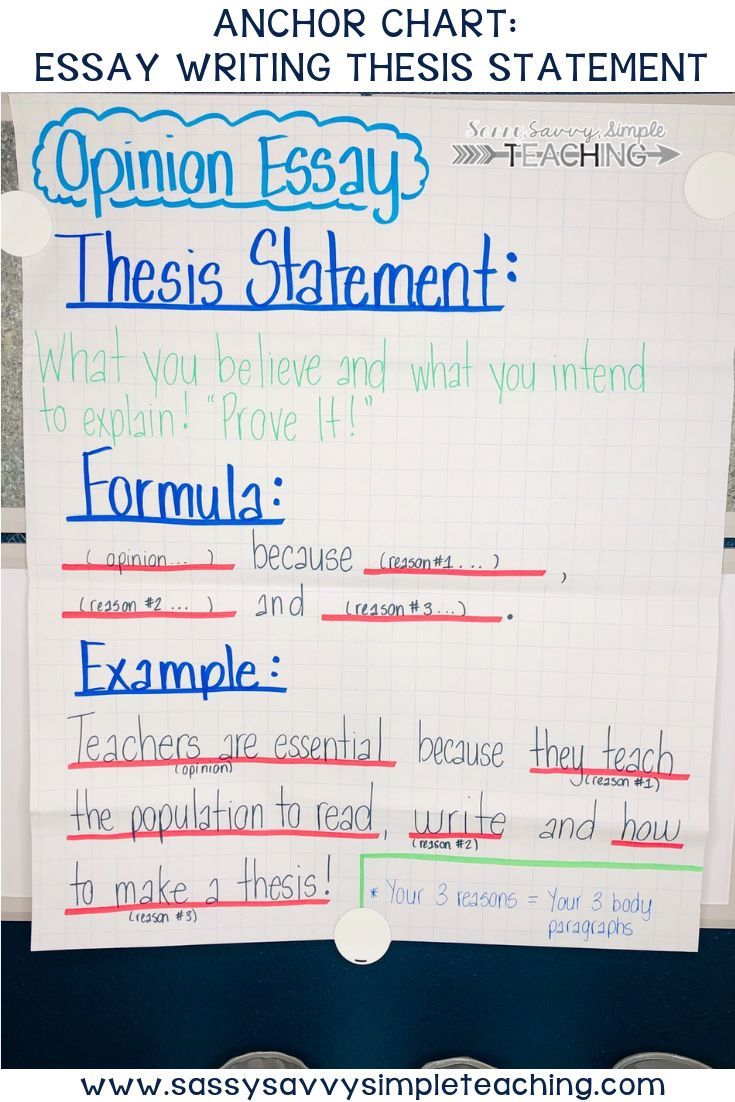 ANCHOR CHART:
ESSAY WRITING THESIS STATEMENT
Savvy, Simple
TEACHING
Opinion Essay
Thesis Statement:
What you believe and what you intend
to explain! "Prove It!"
Formula:
( opinion... ) because (reason #1 ... ) ,
(reason #2 ... ) and (reason #3...) .
Example:
Teachers are essential because they teach
(opinion) (reason #1)
the population to read, write and how
(reason #2)
to make a thesis!
(reason #3)
* Your 3 reasons = Your 3 body
paragraphs
www.sassysavvysimpleteaching.com